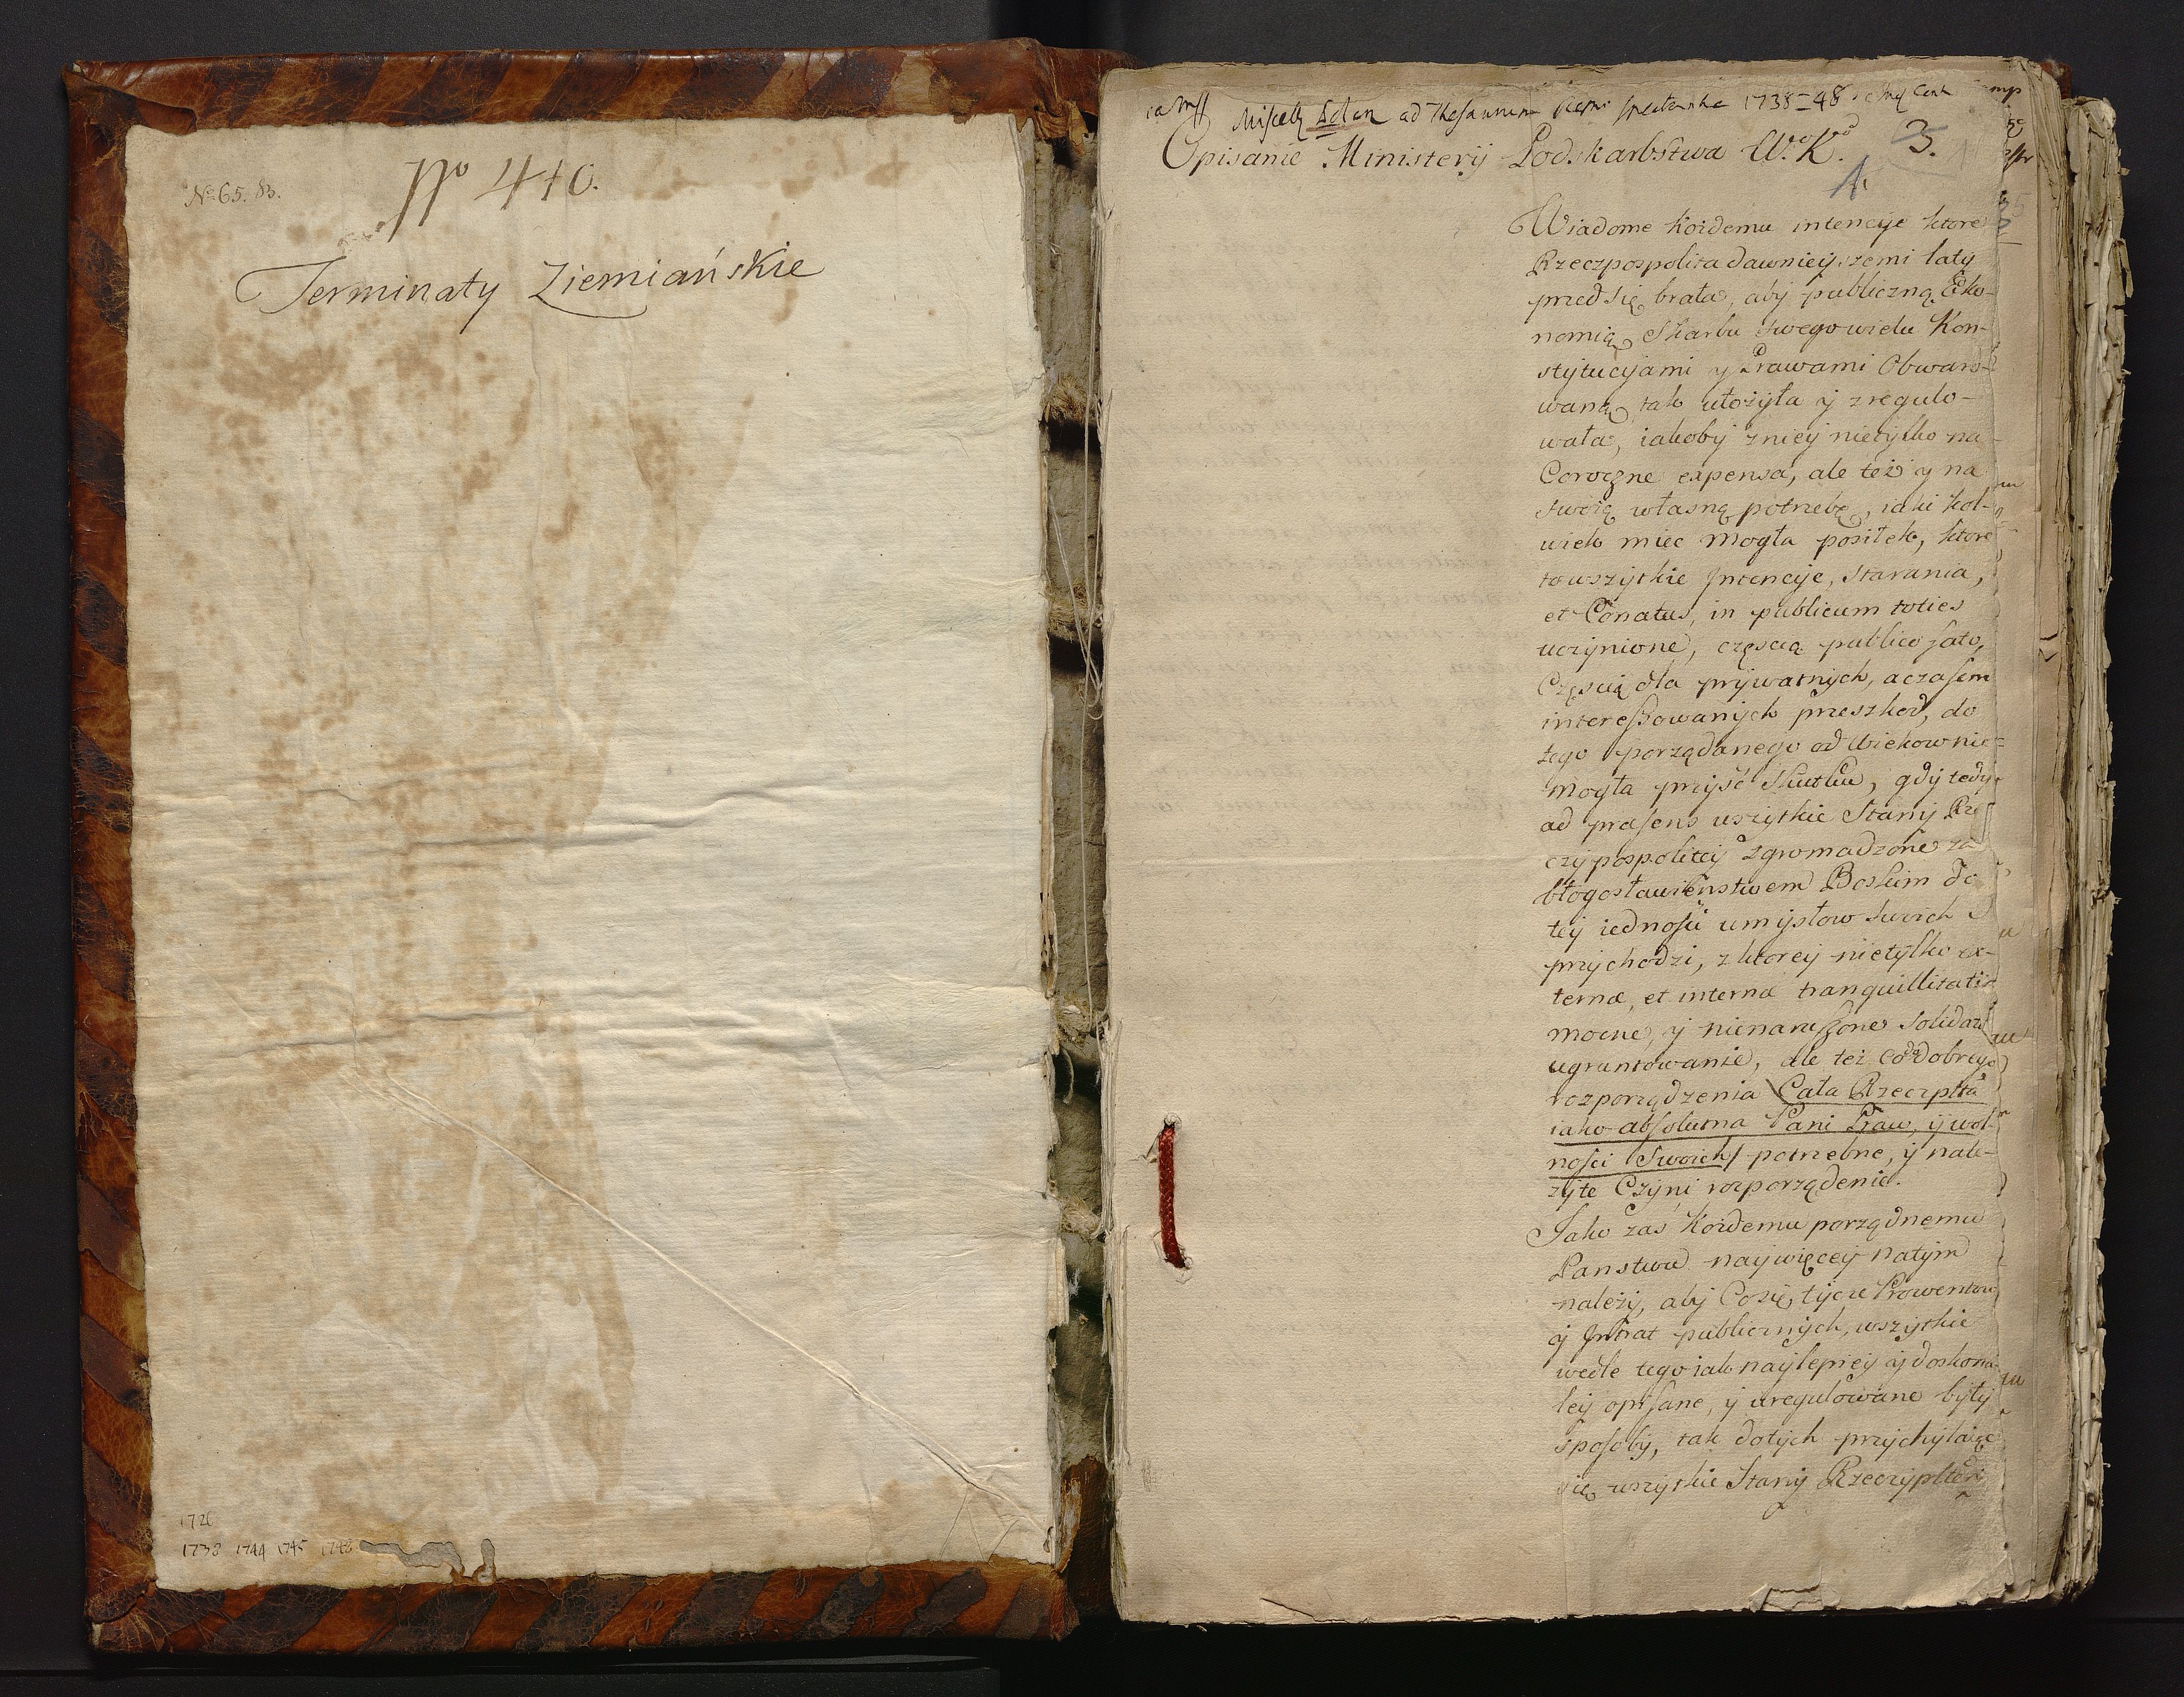 No 65. 83.
No 410.
Terminaty Ziemiańskie
1726
1738 1744 1745 1748
Miscell ad Thesaurum 1738-48
Opisanie Ministerij Podskarbstwa W. K. 3.
Wiadome każdemu intencije ktore
Rzeczpospolita dawnieijszemi laty
przed się brała, abij publiczną Eko-
nomią Skarbu swego wielu Kon-
stijtucijami y Prawami Obwaro-
waną tak ułożijła ij zregulo-
wała, iakobij znieij nietijlko na
Coroczne expensa, ale też y na
swoią własną potrzebę, iaki kol-
wiek miec mogła posiłek, ktore
to wszijtkie Jntencije, starania,
et Conatus, in publicum toties
uczijnione, częscią publico fato,
Częscią dla prijwatnijch, a czasem
interessowanijch przeszkod, do
tego porządanego od wiekow nie
mogła przijsć skutku, gdij tedij
ad præsens wszijtkie Stanij Rze
czijpospoliteij zgromadzone za
błogosławieństwem Boskim do
teij iednosci umijsłow swoich
przijchodzi, z ktoreij nietijlko ex-
ternæ, et internæ tranquillitatis
mocne, ij nienaruszone
ugruntowanie, ale też do dobrego
rozporządzenia Cała Rzeczpltá
iako absolutna Pani Praw, ij wol-
nosci Swoich potrzebne, ij nale-
żijte Czijni rozporządzenie.
Jako zaś każdemu porządnemu
Panstwu naijwięceij natijm
należij, abij Co się tijcze Prowentow
ij Jntrat publicznijch, wszijtkie
wedle tego iak naijlepieij ij doskona-
leij opisane, ij uregulowane bijłij
sposobij, tak do tijch przijchijlaiąc
się wszijtkie Stanij Rzeczijplteij